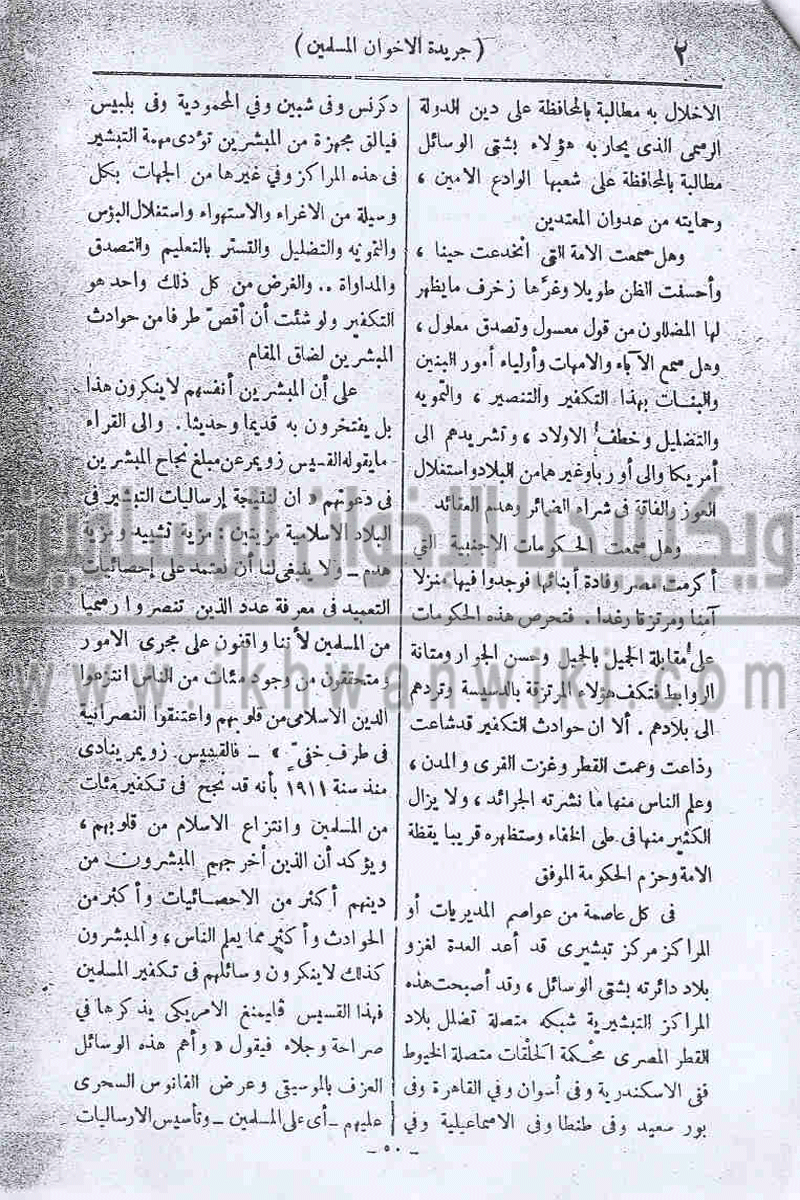 ٢
( جريدة الاخوان المسلمين )
الاخلال به مطالبة بالمحافظة على دين الدولة
الرسمى الذى يحاربه هؤلاء بشتى الوسائل
مطالبة بالمحافظة على شعبها الوادع الامين ،
وحمايته من عدوان المعتدين
وهل سمعت الامة التى انخدعت حينا ،
وأحسنت الظن طويلا وغرَّها زخرف مايظهر
لها المضللون من قول معسول وتصدق معلول ،
وهل سمع الآباء والامهات وأولياء أمور البنين
والبنات بهذا التكفير والتنصير ، والتمويه
والتضليل وخطف الاولاد ، وتشريدهم الى
أمريكا والى أوربا وغيرهما من البلاد واستغلال
العوز والفاقة فى شراء الضمائر وهدم العقائد
وهل سمعت الحكومات الاجنبية التي
أكرمت مصر وفادة أبنائها فوجدوا فيها منزلا
آمنا ومرتزقا رغدا . فتحرص هذه الحكومات
على مقابلة الجميل بالجميل وحسن الجوار ومتانة
الروابط فتكف هؤلاء المرتزقة بالدسيسة وتردهم
الى بلادهم . ألا ان حوادث التكفير قد شاعت
وذاعت وعمت القطر وغزت القرى والمدن ،
وعلم الناس منها ما نشرته الجرائد ، ولا يزال
الكثير منها فى طى الخفاء وستظهره قريبا يقظة
الامة وحزم الحكومة الموفق
فى كل عاصمة من عواصم المديريات أو
المراكز مركز تبشيرى قد أعد العدة لغزو
بلاد دائرته بشتى الوسائل ، وقد أصبحت هذه
المراكز التبشيرية شبكه متصلة تضلل بلاد
القطر المصرى محكمة الحلقات متصلة الخيوط
ففى الاسكندرية وفى أسوان وفي القاهرة وفى
بور سعيد وفى طنطا وفى الاسماعيلية وفي
دكرنس وفى شبين وفي المحمودية وفى بلبيس
فيالق مجهزة من المبشرين تؤدى مهمة التبشير
فى هذه المراكز وفي غيرها من الجهات بكل
وسيلة من الاغراء والاستهواء واستغلال البؤس
والتمويه والتضليل والتستر بالتعليم والتصدق
والمداواة .. والغرض من كل ذلك واحد هو
التكفير ولو شئت أن أقصّ طرفا من حوادث
المبشرين لضاق المقام
على أن المبشرين أنفسهم لا ينكرون هذا
بل يفتخرون به قديما وحديثا . والى القراء
مايقوله القسيس زويمر عن مبلغ نجاح المبشرين
فى دعوتهم « ان لنتيجة إرساليات التبشير فى
البلاد الاسلامية مزيتين : مزية تشييد ومزية
هدم – ولا ينبغى لنا أن نعتمد على إحصائيات
التعميد فى معرفة عدد الذين تنصروا رسميا
من المسلمين لأننا واقفون على مجرى الامور
ومتحققون من وجود مئات من الناس انتزعوا
الدين الاسلامى من قلوبهم واعتنقوا النصرانية
فى طرف خفىّ » – فالقسيس زويمر ينادى
منذ سنة ١٩١١ بأنه قد نجح فى تكفير مئات
من المسلمين وانتزاع الاسلام من قلوبهم ،
ويؤكد أن الذين أخرجهم المبشرون من
دينهم أكثر من الاحصائيات وأكثر من
الحوادث وأكثر مما يعلم الناس ، والمبشرون
كذلك لا ينكرون وسائلهم فى تكفير المسلمين
فهذا القسيس ڤايمنغ الامريكى يذكرها في
صراحة وجلاء فيقول « وأهم هذه الوسائل
العزف بالموسيقى وعرض الفانوس السحرى
عليهم – أى على المسلمين – وتأسيس الارساليات
– ٥٠ –
ويكيبيديا الاخوان المسلمين
www.ikhwanwiki.com